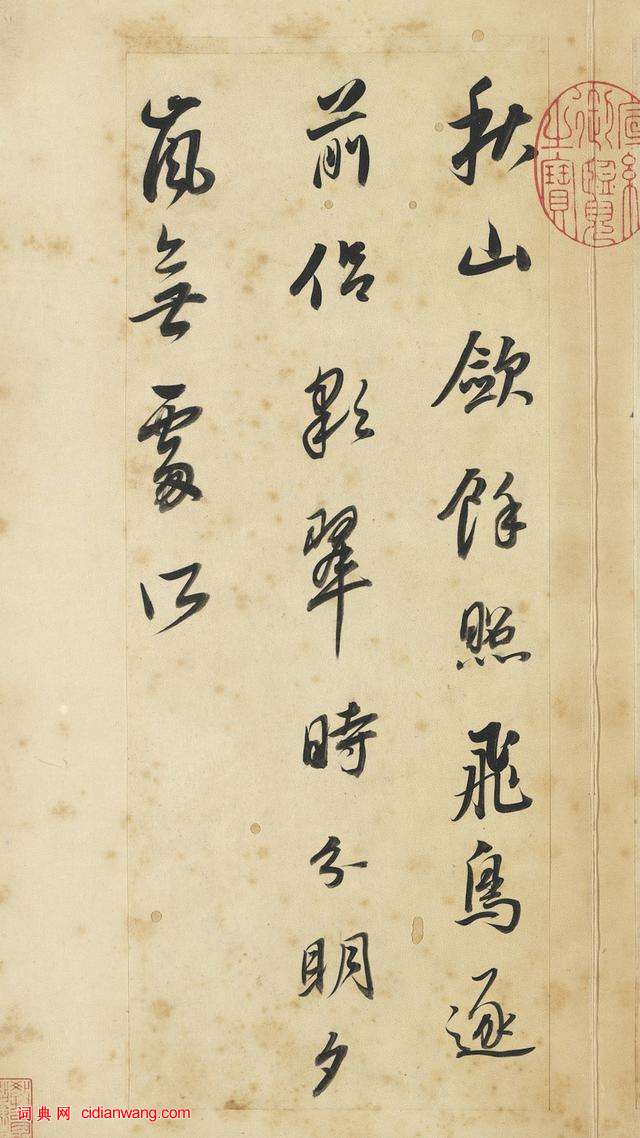 宣統
御覽
之寶
秋山歛餘照飛鳥逐
前侶彩翠時分明夕
嵐無處所
词典网 cidianwang.com